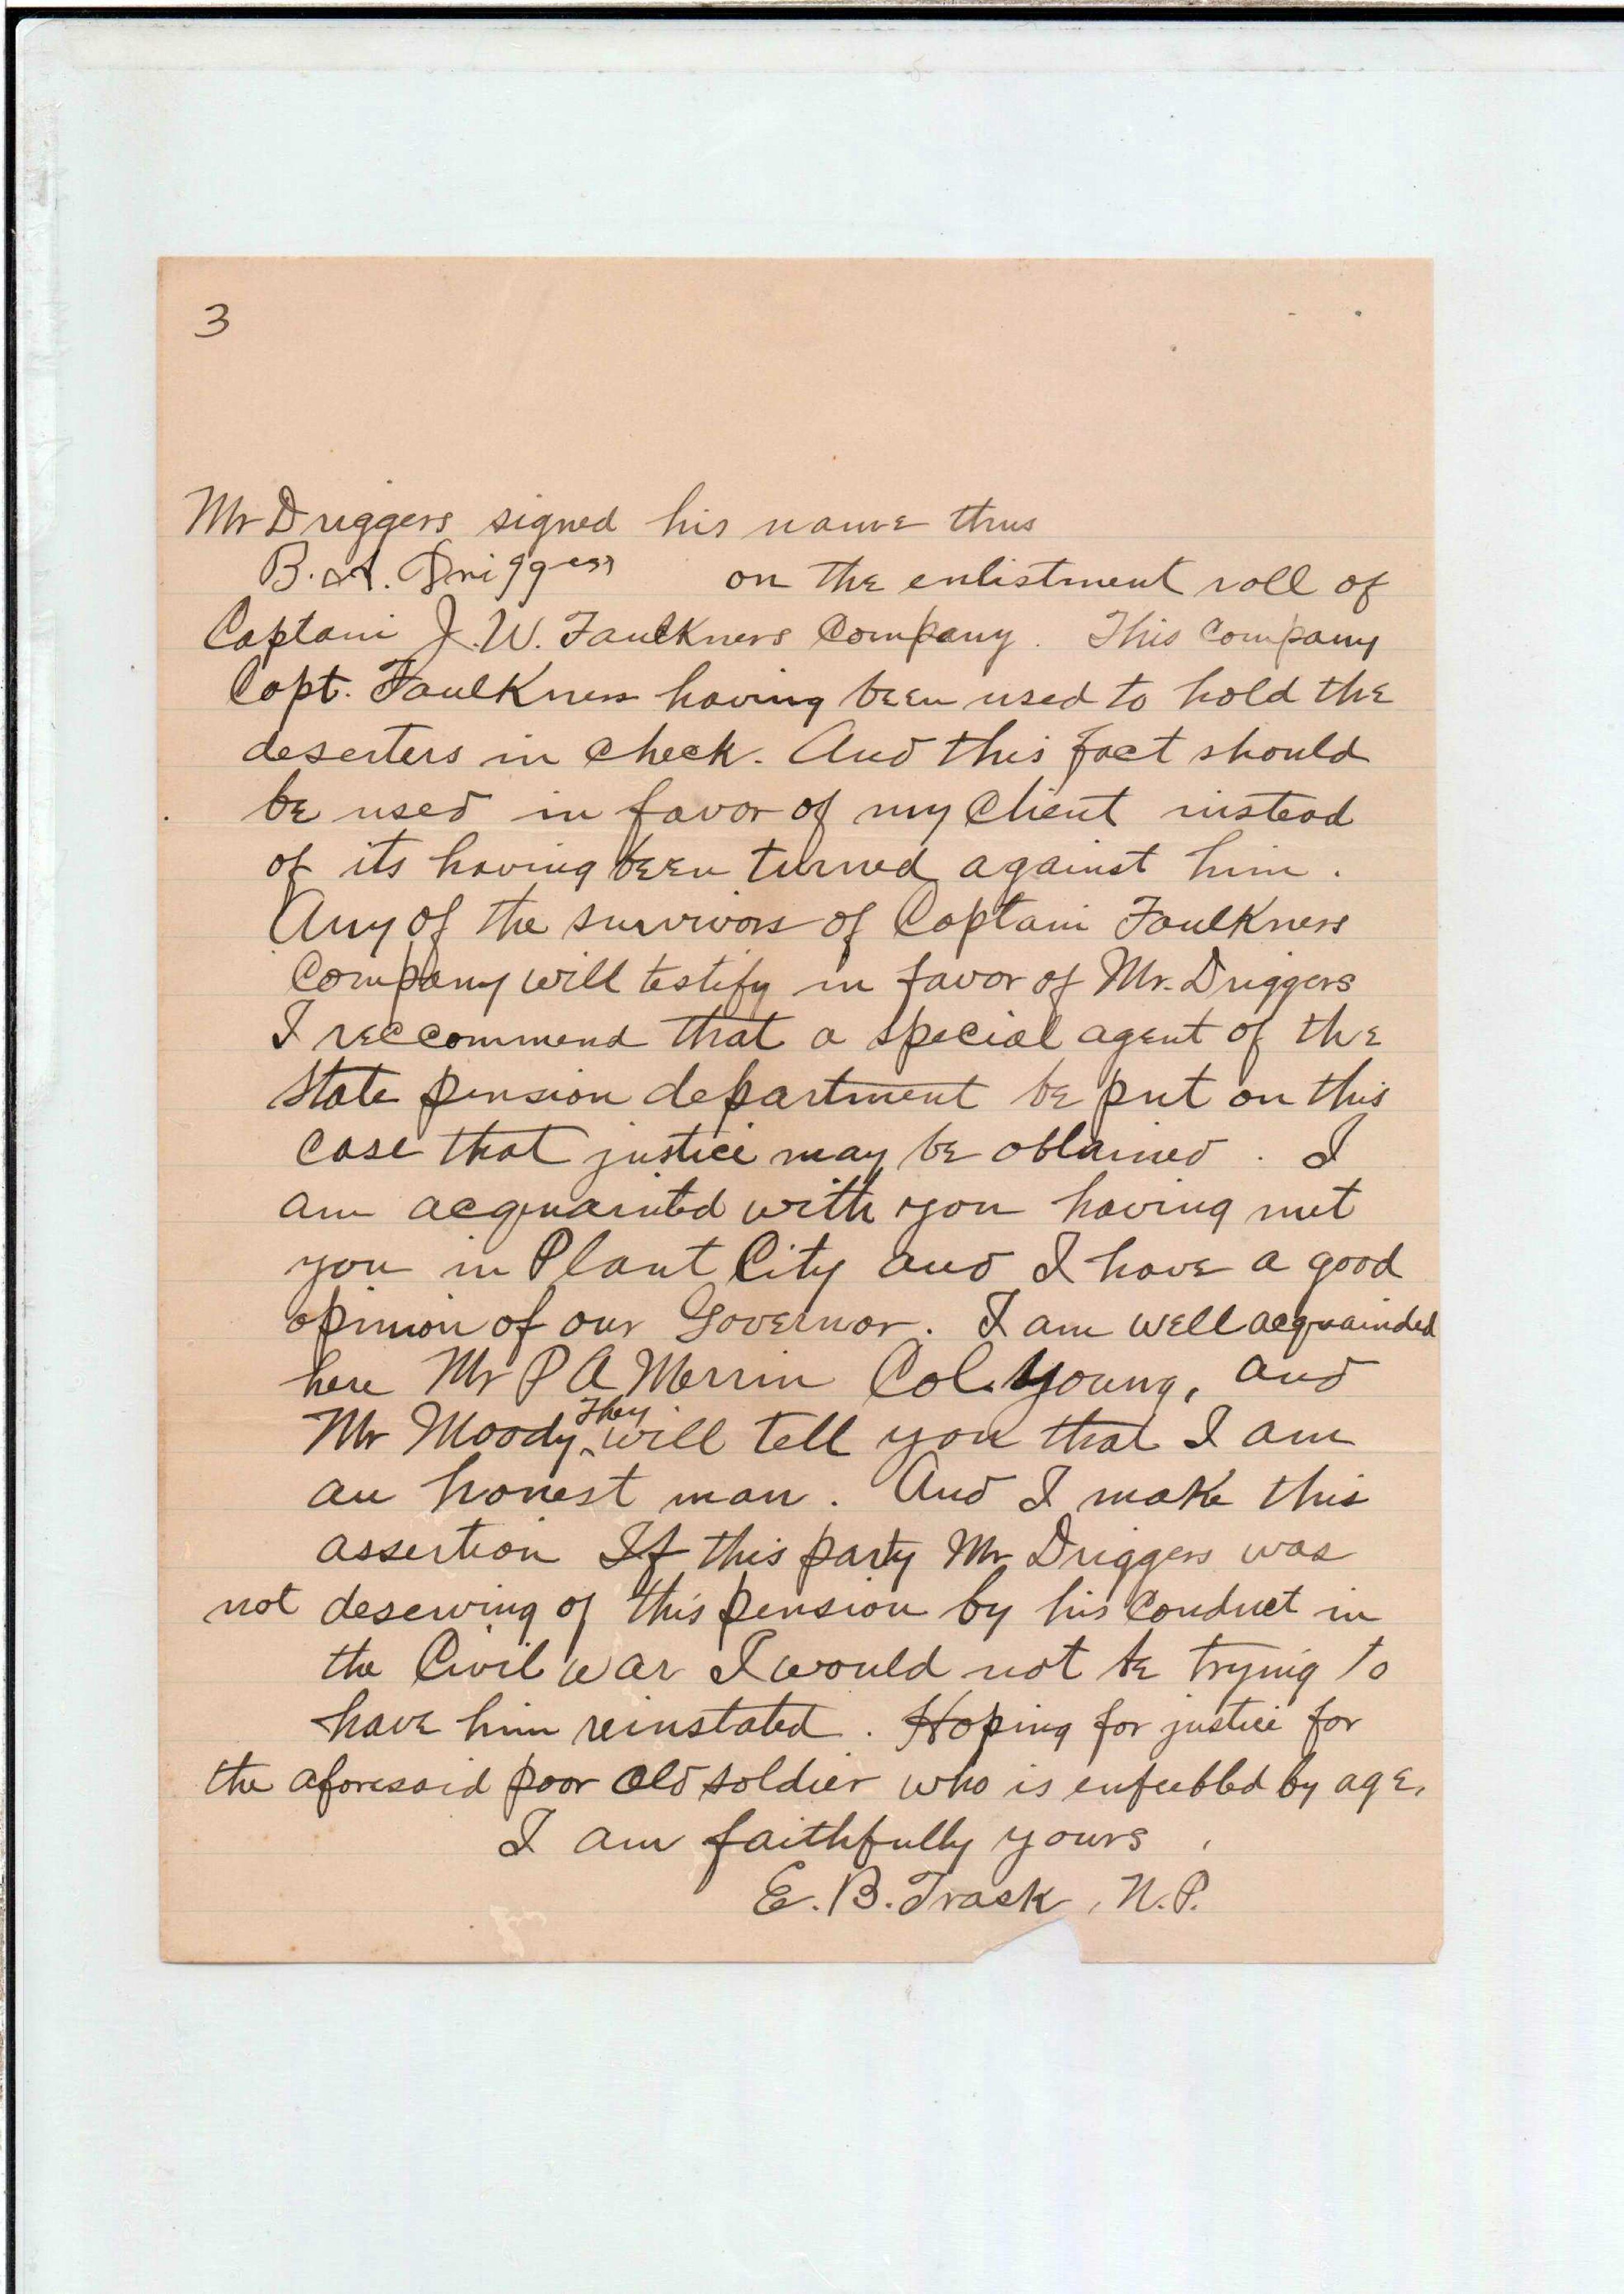 3
Mr Driggers signed his name thus
B. A. Driggers on the enlistment roll of
Captain J. W. Faulkners Company. This Company
Capt. Faulkners having been used to hold the
deserters in check. And this fact should
be used in favor of my Client instead
of its having been turned against him.
Any of the survivors of Captain Faulkners
Company will testify in favor of Mr. Driggers
I reccommend that a special agent of the
State pension department be put on this
case that justice may be obtained. I
am acquainted with you having met
you in Plant City and I have a good
opinion of our Governor. I am well acquainded
here Mr P A Merrin Col. Young, and
Mr Moody They will tell you that I am
an honest man. And I make this
assertion If this party Mr Driggers was
not deserving of this pension by his Conduct in
the Civil war I would not be trying to
have him reinstated. Hoping for justice for
the aforesaid poor old soldier who is enfeebled by age,
I am faithfully yours,
E. B. Trask, N.P.